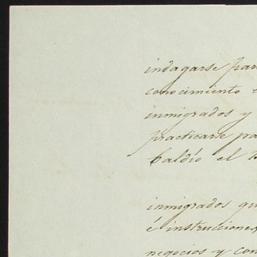 indagarse par
conocimiento
inmigrados y
practicarse pa
baldío el
inmigrados qu
é instrucciones
negocios y con